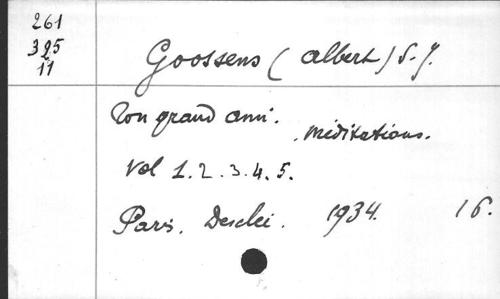 261
395
11
Goossens (Albert) S.J.
Ton grand ami.
Méditations.
Vol 1.2.3.4.5.
Paris. Desclée. 1934. 16.